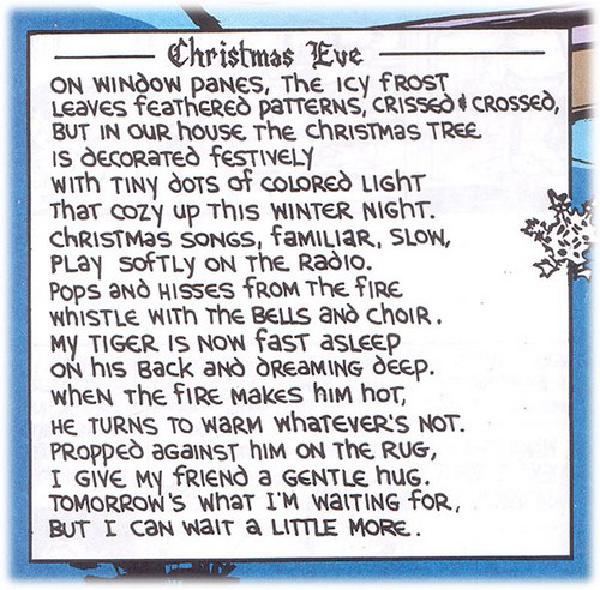 Christmas Eve
ON WINDOW PANES, THE ICY FROST
LEAVES FEATHERED PATTERNS, CRISSED & CROSSED,
BUT IN OUR HOUSE THE CHRISTMAS TREE
IS DECORATED FESTIVELY
WITH TINY DOTS OF COLORED LIGHT
THAT COZY UP THIS WINTER NIGHT.
CHRISTMAS SONGS, FAMILIAR, SLOW,
PLAY SOFTLY ON THE RADIO.
POPS AND HISSES FROM THE FIRE
WHISTLE WITH THE BELLS AND CHOIR.
MY TIGER IS NOW FAST ASLEEP
ON HIS BACK AND DREAMING DEEP.
WHEN THE FIRE MAKES HIM HOT,
HE TURNS TO WARM WHATEVER'S NOT.
PROPPED AGAINST HIM ON THE RUG,
I GIVE MY FRIEND A GENTLE HUG.
TOMORROW'S WHAT I'M WAITING FOR,
BUT I CAN WAIT A LITTLE MORE.